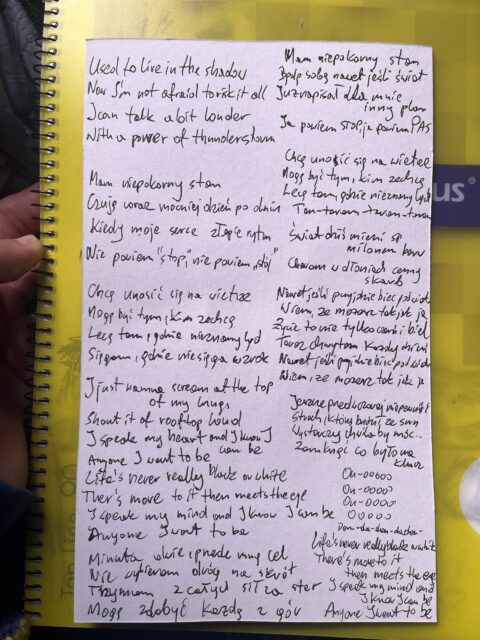 Used to live in the shadow
Now I'm not afraid to risk it all
I can talk a bit louder
With a power of thunderstorm
Mam niepokorny stan
Czuję coraz mocniej dzień po dniu
Kiedy moje serce złapie rytm
Nie powiem "stop", nie powiem "stój"
Chcę unosić się na wietrze
Mogę być tym, kim zechcę
Lecę tam, gdzie nieznany ląd
Sięgam, gdzie nie sięga wzrok
I just wanna scream at the top
of my lungs
Shout it of rooftop loud
I speak my heart and I know I
can be
Anyone I want to be
Life's never really black or white
Ther's more to it then meets the eye
I speak my mind and I know I can be
Anyone I want to be
Minuta obok przede mną cel
Nie wybieram dróg na skrót
Trzymam z całych sił za ster
Mogę zdobyć każdą z gór
Mam niepokorny stan
Będę sobą nawet jeśli świat
Już napisał dla mnie
inny plan
Ja powiem STOP, ja powiem PAS
Chcę unosić się na wietrze
Mogę być tym, kim zechcę
Lecę tam, gdzie nieznany ląd
Tam-taram-taram-taram
Świat dziś mieni się
milionem barw
Chowam w dłoniach cenny
skarb
Nawet jeśli przyjdzie biec pod wiatr
Wiem, że możesz tak jak ja
Życie to nie tylko czerń i biel
Teraz chwytam każdy dzień
Nawet jeśli przyjdzie biec pod wiatr
Wiem, że możesz tak jak ja
Jeszcze przed wczoraj niepewność
strach, który budził ze snu
Wystarczy chwila by móc..
Zamknąć co było na
klucz
Ou-ooooo
Ou-oooo
Ou-oooo
Ooooo
Life's never really black or white
There's more to it
then meets the eye
I speak my mind and
I know I can be
Anyone I want to be
us